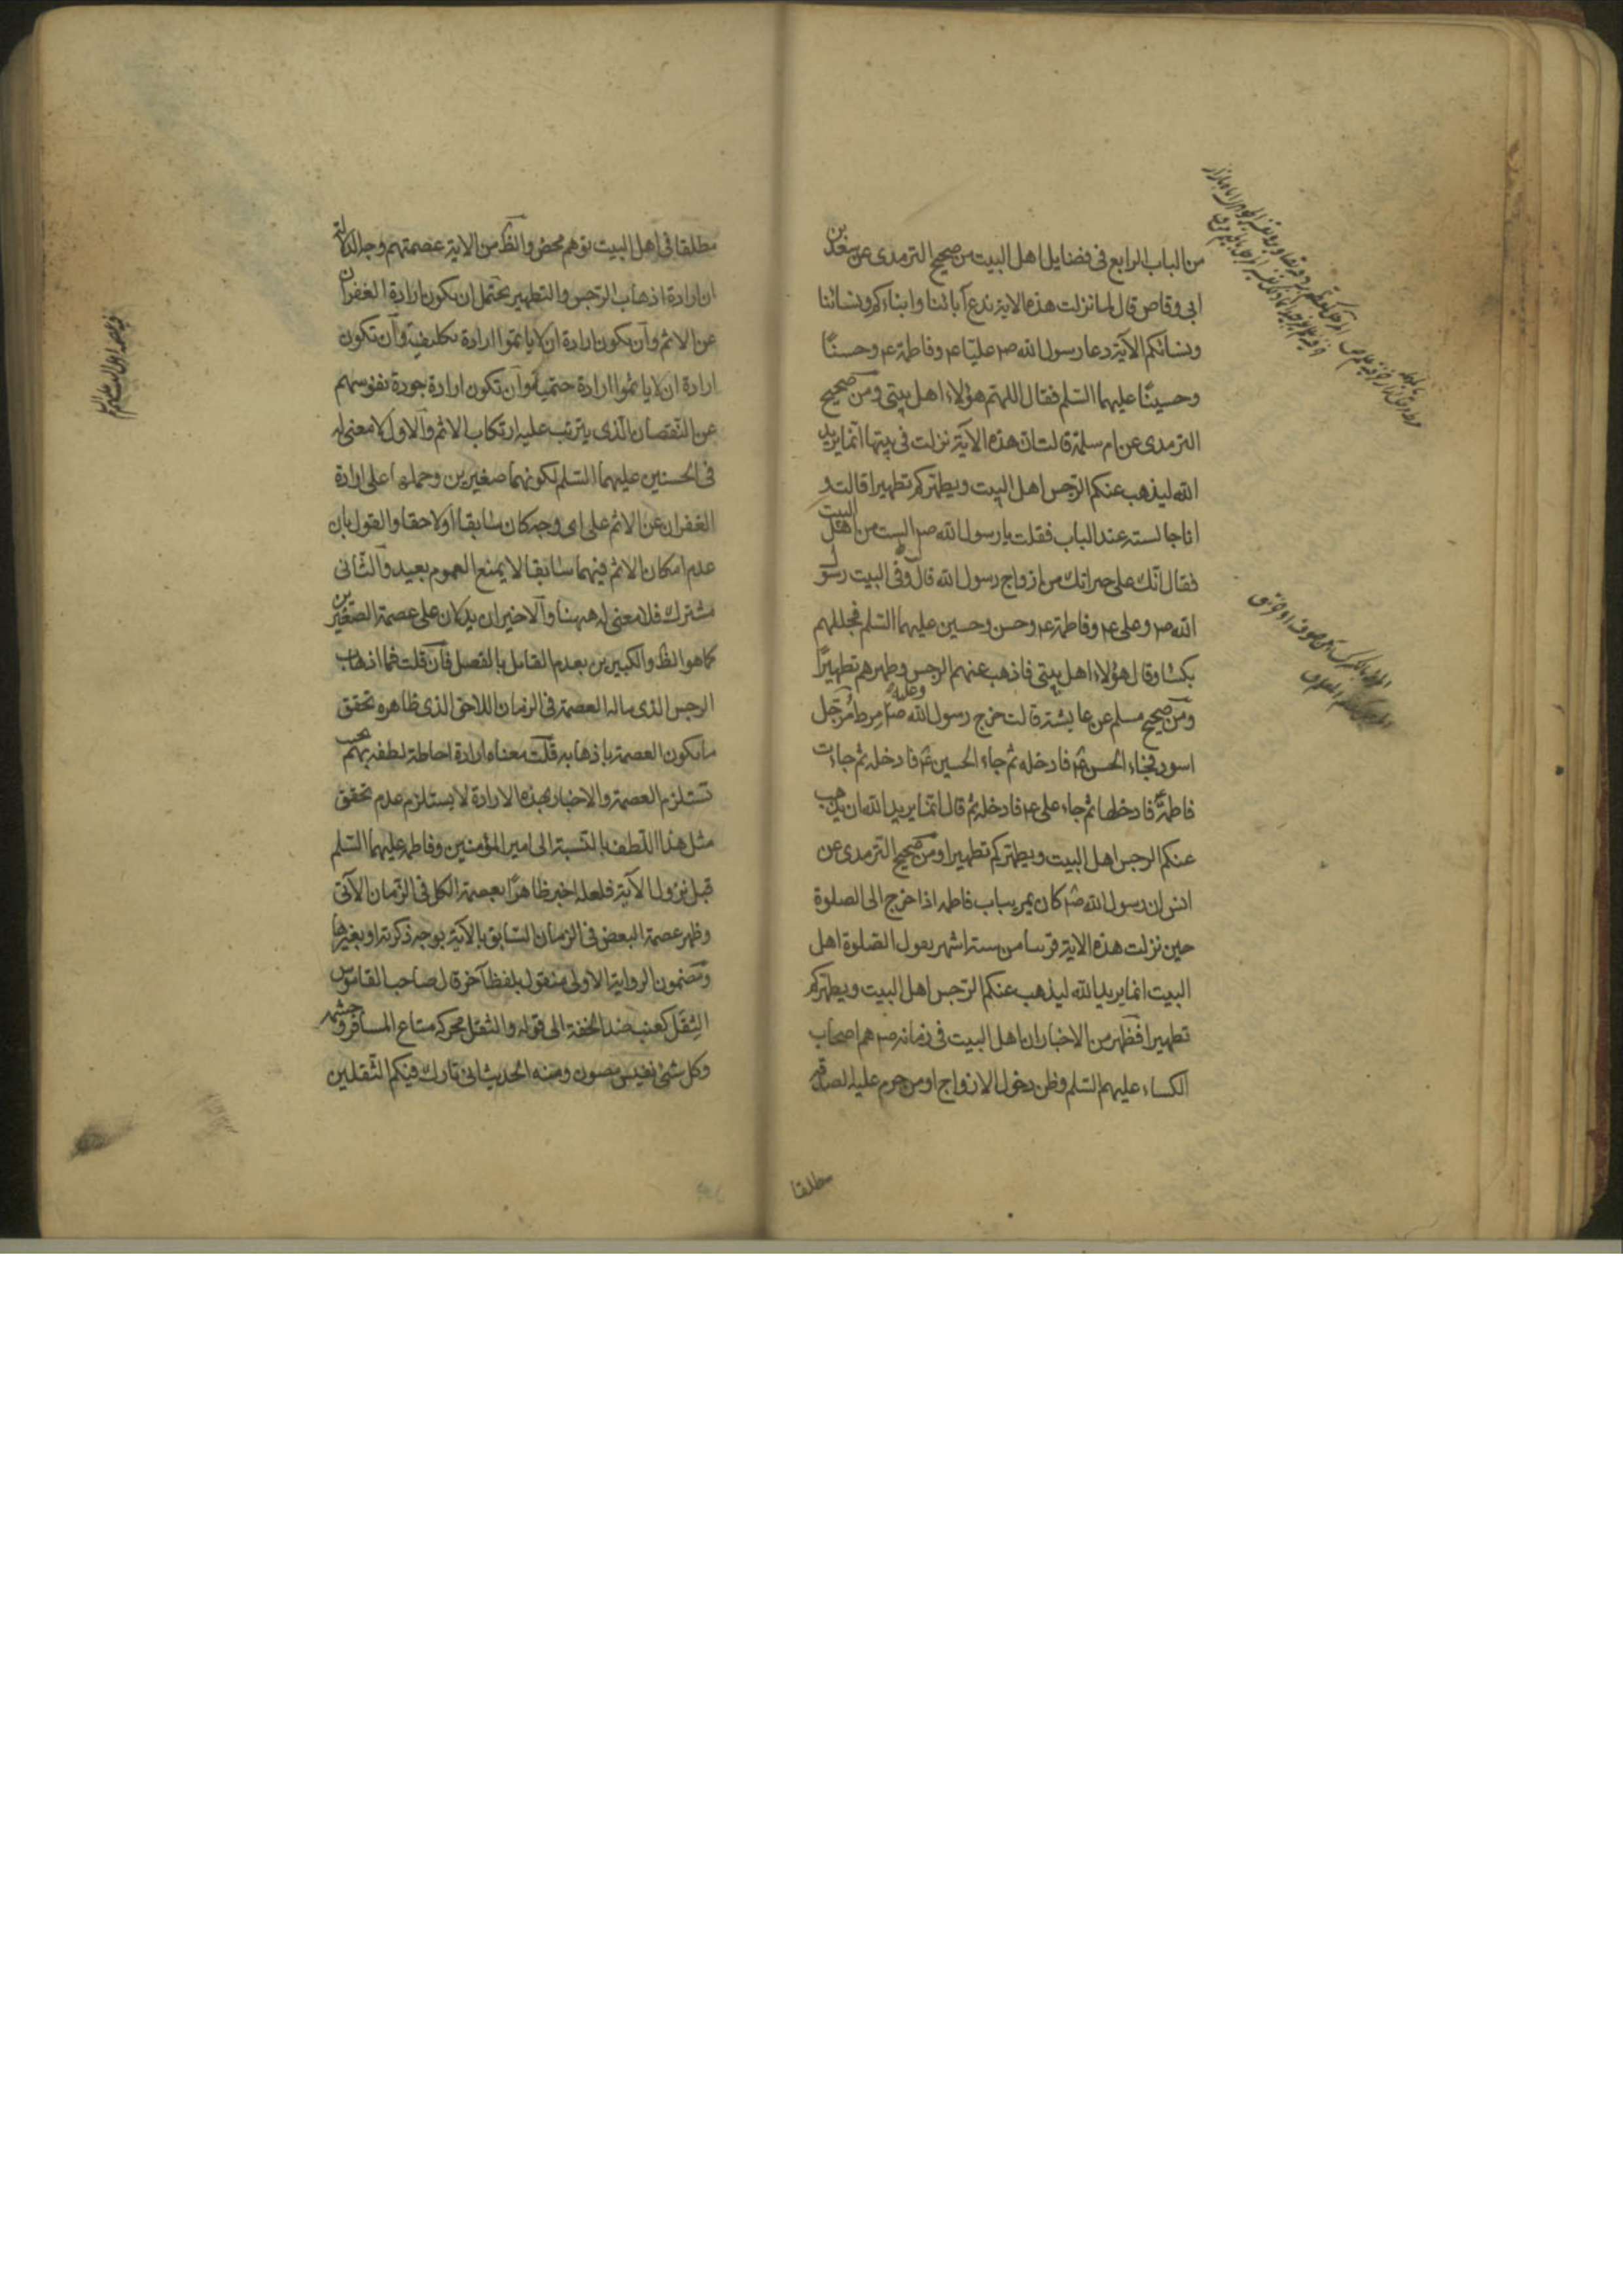 من الباب الرابع فى فضايل اهل البيت من صحيح الترمدى عن سعد بن
ابى وقاص قال لما نزلت هذه الاية ندع آبائنا وابناءكم ونسائنا
ونسائكم الآية دعا رسول الله صم عليّا عم وفاطمة عم وحسنًا
وحسينًا عليهما السّلم فقال اللهمّ هؤلاء اهل بيتى ومن صحيح
الترمدى عن ام سلمة قالت ان هذه الآية نزلت فى بيتها انّما يريد
الله ليذهب عنكم الرّجس اهل البيت ويطهّركم تطهيرا قالت و
انا جالسته عند الباب فقلت يا رسول الله صم الست من اهل البيت
فقال انّك على خير انّك من ازواج رسول الله قال وفى البيت رسول
الله صم وعلى عم وفاطمة عم وحسن وحسين عليهما السّلم فجللهم
بكساء وقال هؤلاء اهل بيتى فاذهب عنهم الرجس وطهرهم تطهيرًا
ومن صحيح مسلم عن عايشة قالت خرج رسول الله صم وعليه مِرط مُرَجّل
اسود فجاء الحسن عم فادخله ثم جاء الحسين عم فادخله ثم جاءت
فاطمة عم فادخلها ثم جاء على عم فادخله ثم قال انّما يريد الله ان يذهب
عنكم الرجس اهل البيت ويطهّركم تطهيرا ومن صحيح الترمدى عن
انس ان رسول الله صم كان يمر بباب فاطمه اذا خرج الى الصلوة
حين نزلت هذه الاية قريبا من ستة اشهر يقول الصّلوة اهل
البيت انما يريد الله ليذهب عنكم الرّجس اهل البيت ويطهّركم
تطهيرا فظهر من الاخبار ان اهل البيت فى زمانه صم هم اصحاب
الكساء عليهم السّلم وظن دخول الازواج او من حرم عليه الصدقة
مطلقا
مطلقا فى اهل البيت توهم محض والظ من الاية عصمتهم وجه الدلالة
ان ارادة اذهاب الرّجس والتطهير يحتمل ان يكون ارادة الغفران
عن الاثم وان يكون ارادة ان لا ياثموا ارادة تكليفية وان تكون
ارادة ان لا ياثموا ارادة حتمية وان تكون ارادة جودة نفوسهم
عن النّقصان الّذى يترتب عليه ارتكاب الاثم والاول لا معنى له
فى الحسنين عليهما السّلم لكونهما صغيرين وحملها على ارادة
الغفران عن الاثم على اى وجه كان سابقا او لاحقا والقول بان
عدم امكان الاثم فيهما سابقا لا يمنع العموم بعيد والثّانى
مشترك فلا معنى له ههنا والاخيران يدلان على عصمة الصّغيرين
كما هو الظ والكبيرين بعدم القائل بالفصل فان قلت فما اذهاب
الرجس الذى ماله العصمة فى الزمان اللاحق الذى ظاهره تحقق
ما يكون العصمة باذهابه قلت معناه ارادة احاطة لطفه بهم بحيث
تستلزم العصمة والاخبار بهذه الارادة لا يستلزم عدم تحقق
مثل هذا اللّطف بالنّسبة الى امير المؤمنين وفاطمة عليهما السّلم
قبل نزول الآية فلعله اخبر ظاهرًا بعصمة الكل فى الزّمان الآتى
وظهر عصمة البعض فى الزمان السّابق بالآية بوجه ذكرته او بغيرها
ومضمون الرواية الاولى منقول بلفظ آخر قال صاحب القاموس
الثِقَل كعنب ضد الخفة الى قوله والثقل محركة متاع المسافر وحشمه
وكل شئ نفيس مصون ومنه الحديث انى تارك فيكم الثّقلين